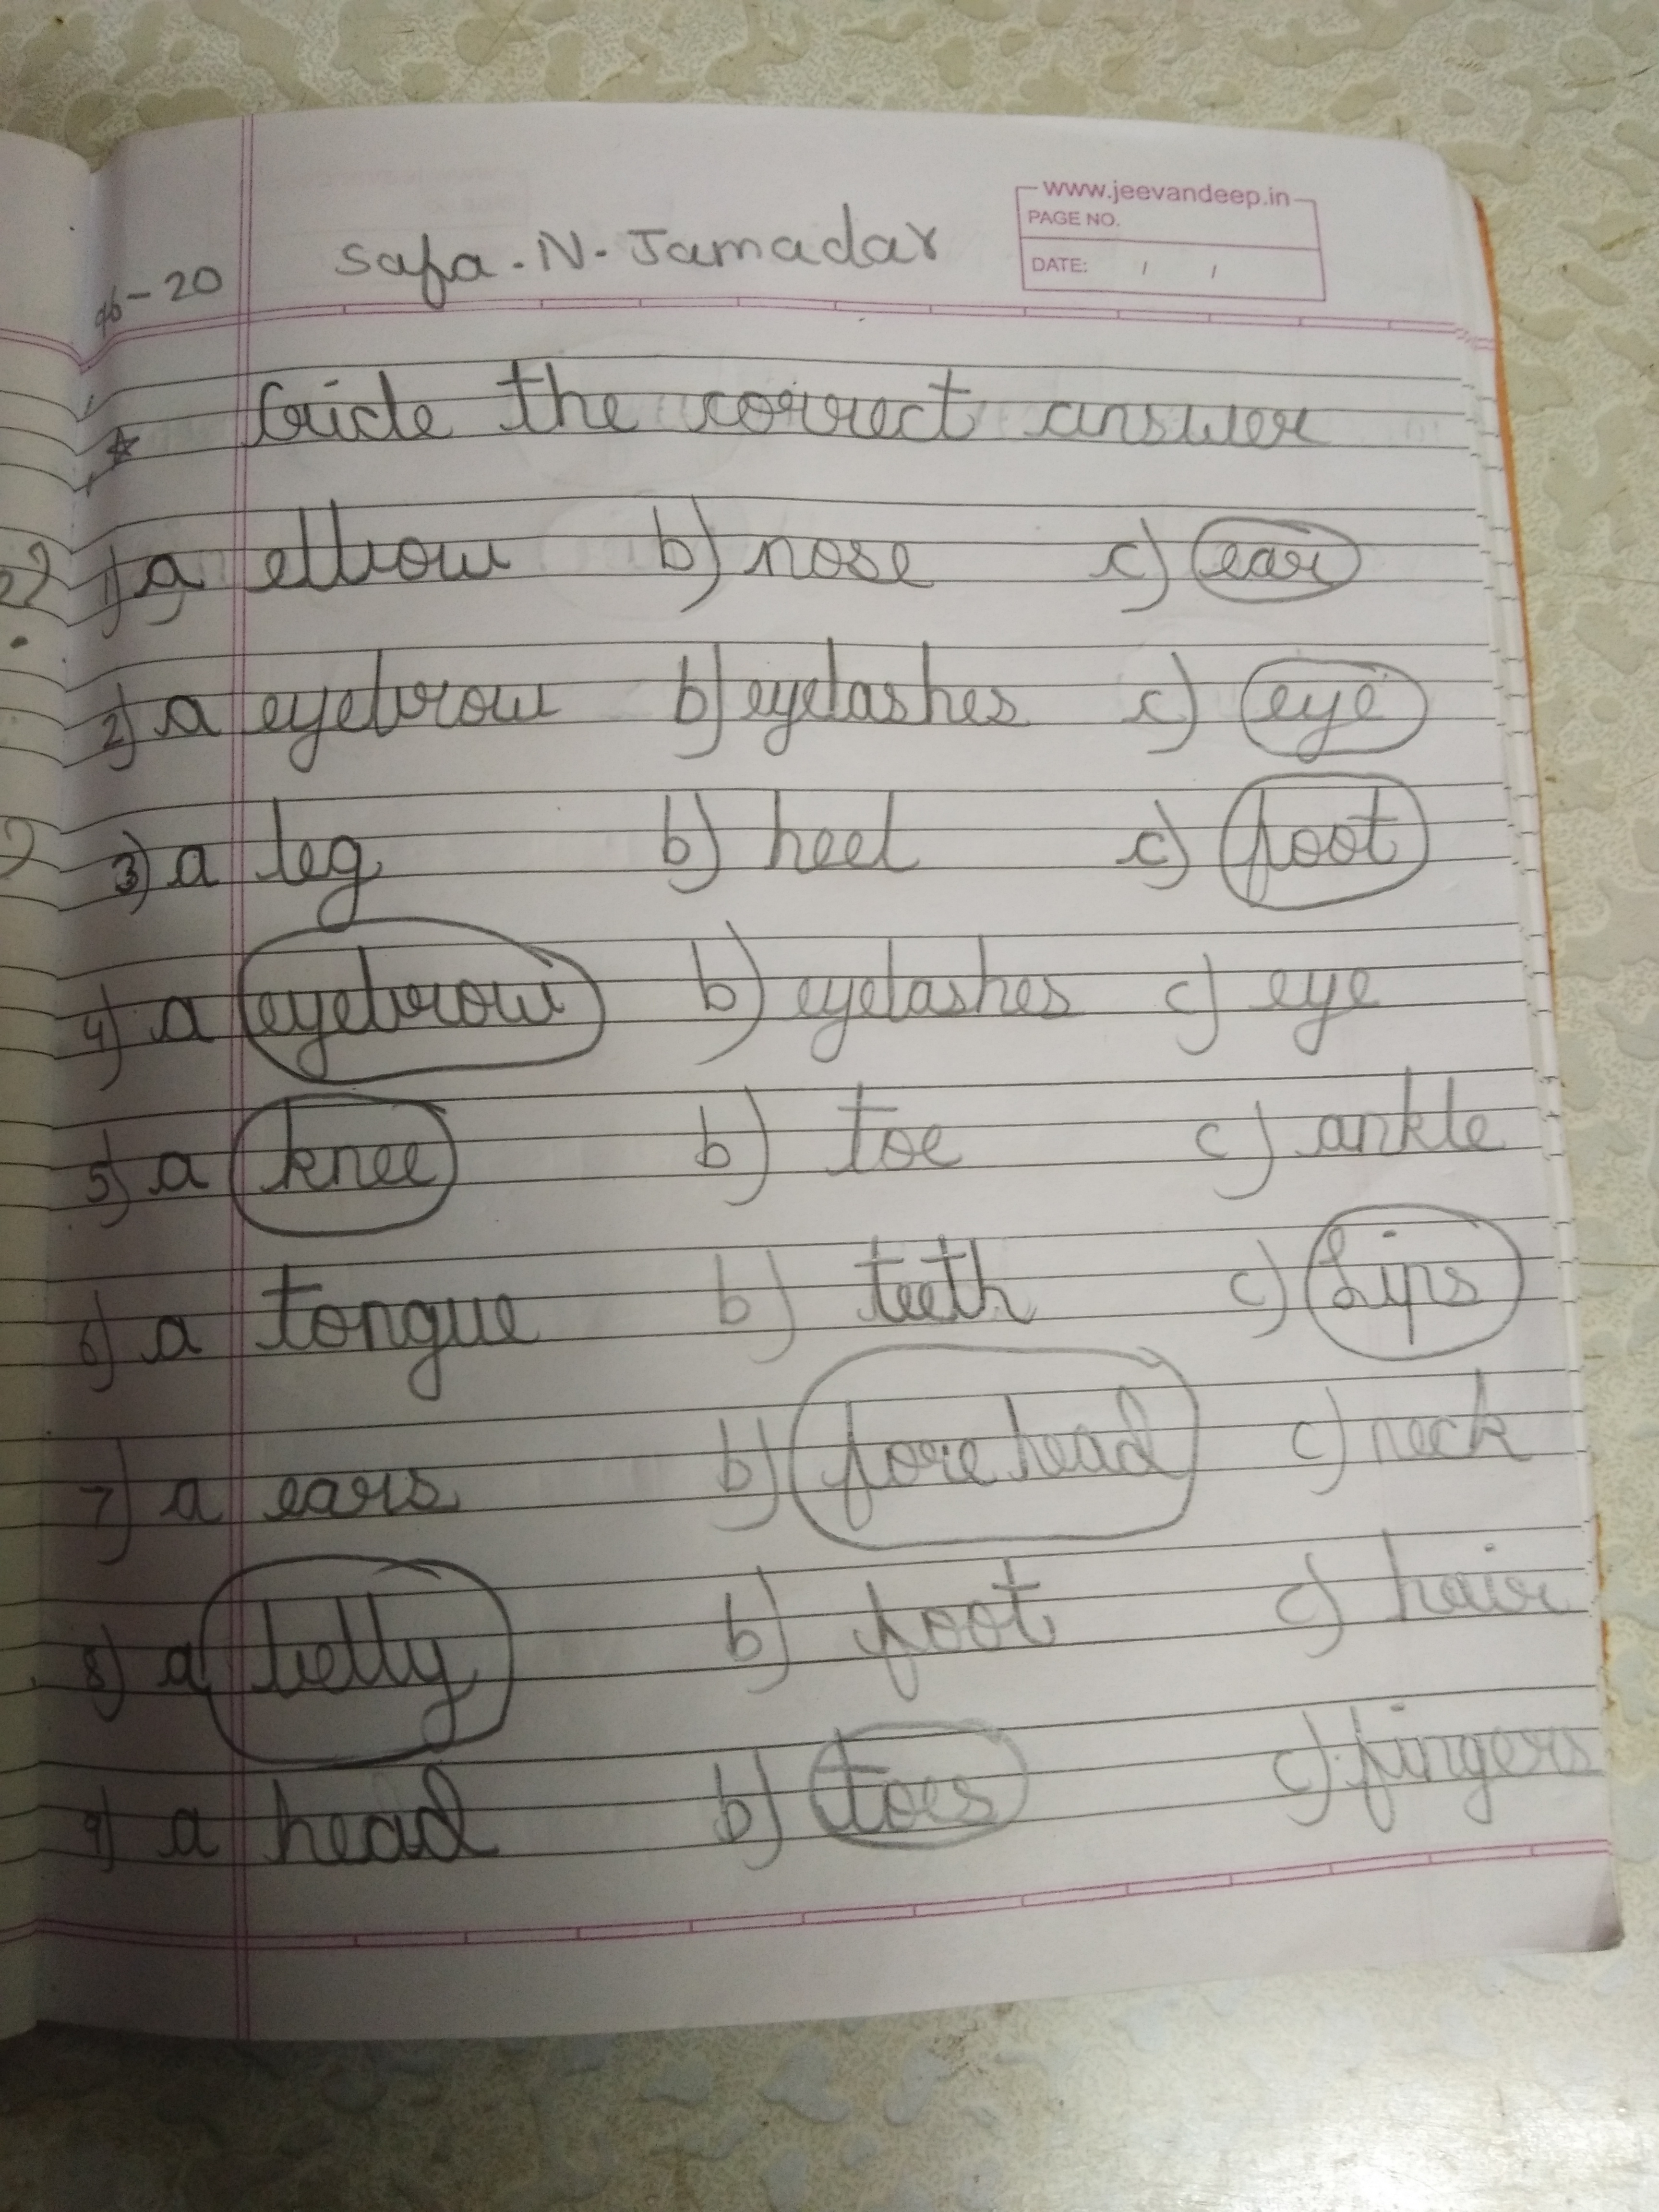 www.jeevandeep.in
PAGE NO.
Safa. N. Jamadar
DATE: / /
-20
the correct answer
1) a elbow b) nose c) ear
2) a eyebrow b) eyelashes c) eye
3) a leg b) heel c) foot
4) a eyebrow b) eyelashes c) eye
5) a knee b) toe c) ankle
6) a tongue b) teeth c) Lips
7) a ears b) fore head c) neck
8) a belly b) foot c) hair
9) a head b) toes c) fingers